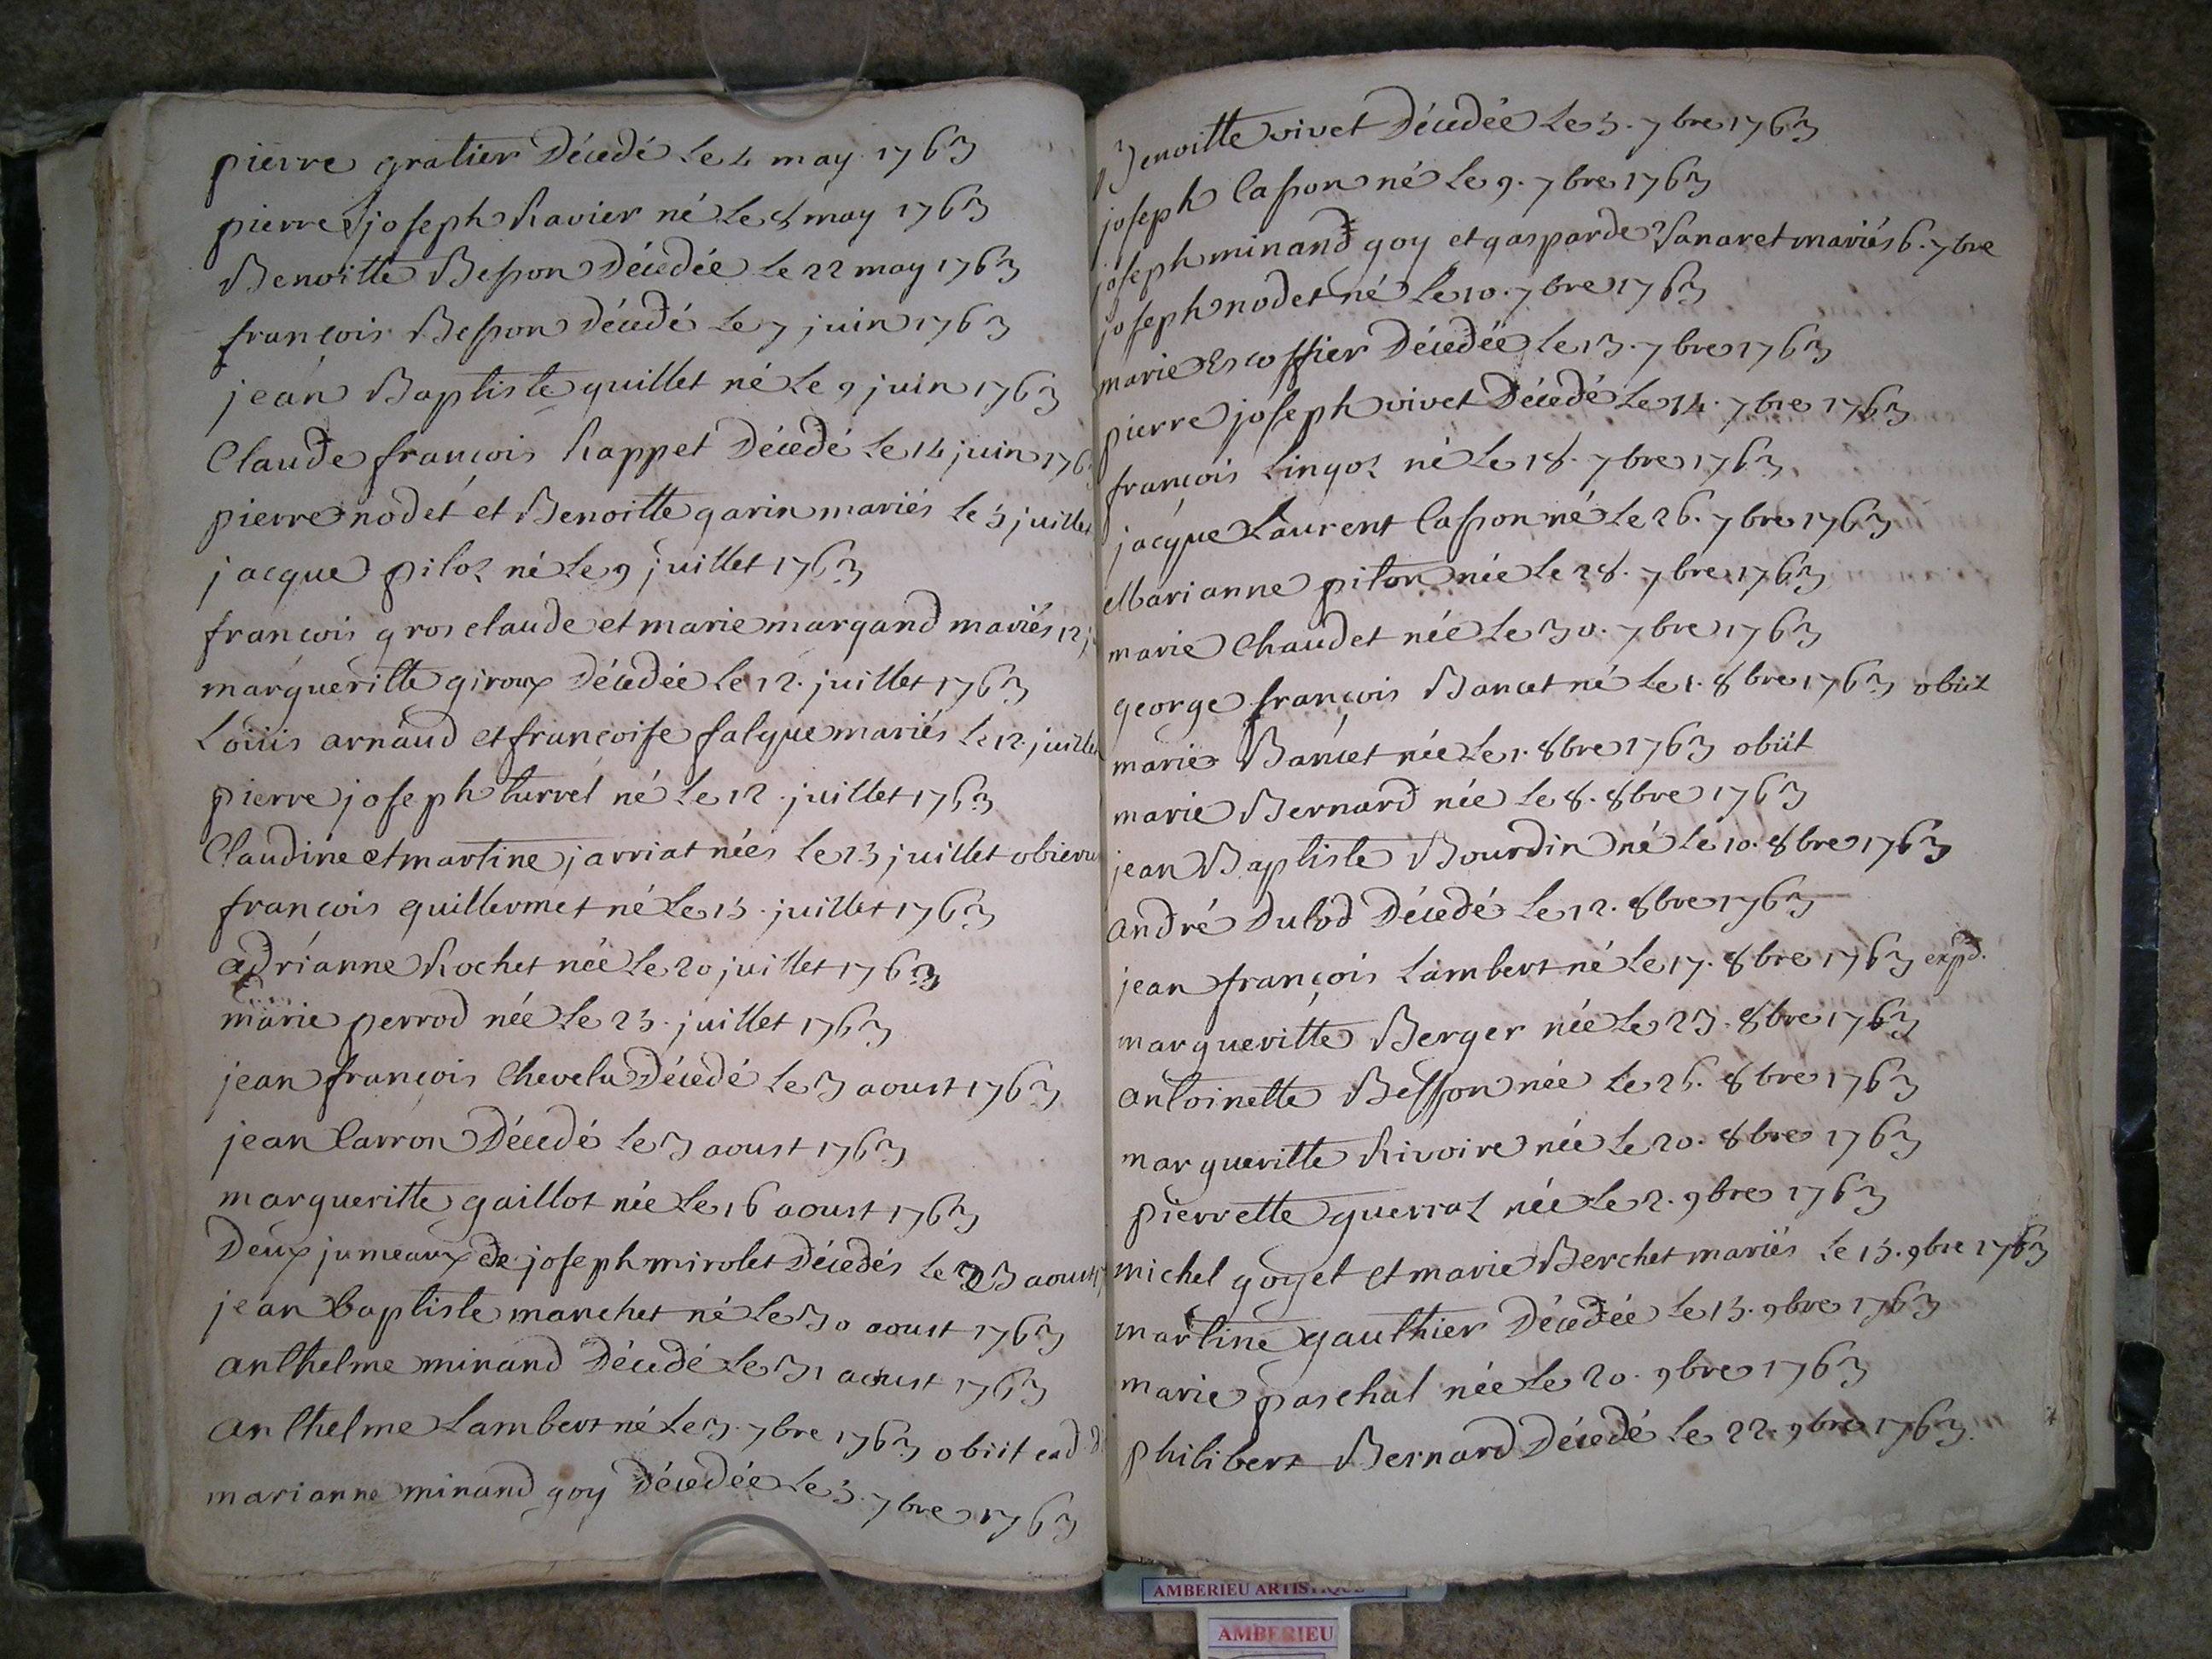 pierre gratier Décédé Le 4 may 1763
pierre joseph Ravier né Le 8 may 1763
Benoitte Besson Décedée Le 22 may 1763
françois Besson Décedé Le 7 juin 1763
jean Baptiste guillet né Le 9 juin 1763
Claude françois Rappet Décedé Le 14 juin 176
pierre nodet et Benoitte garin mariés Le 5 juillet
jacque piloz né Le 9 juillet 1763
françois gros claude et marie margand mariés 12
margueritte giroux Décedée Le 12. juillet 1763
Loüis arnaud et françoise falque mariés Le 12. juillet
pierre joseph turrel né Le 12. juillet 1763
Claudine et martine jarriat nées Le 13 juillet obieru
françois guillermet né Le 15. juillet 1763
adrianne Rochet née Le 20 juillet 1763
marie perrod née Le 25. juillet 1763
jean françois Chevelu Décedé Le 3 aoust 1763
jean Carron Décedé Le 3 aoust 1763
margueritte gaillot née Le 16 aoust 1763
Deux jumeaux de joseph mirolet Décedés Le 23 aoust
jean baptiste marchet né Le 30 aoust 1763
anthelme minand Décedé Le 31 aoust 1763
anthelme Lambert né Le 3. 7bre 1763 obiit ead
marianne minand goy Décedée Le 5. 7bre 1763
Benoitte vivet Décedée Le 5. 7bre 1763
joseph Casson né Le 9. 7bre 1763
joseph minand goy et gasparde Vanaret mariés 6. 7bre
joseph nodet né Le 10. 7bre 1763
marie Escoffier Décedée Le 13. 7bre 1763
pierre joseph vivet Décedé Le 14. 7bre 1763
françois Lingoz né Le 18. 7bre 1763
jacque Laurent Casson né Le 26. 7bre 1763
Marianne piton née Le 28. 7bre 1763
marie Chaudet née Le 30. 7bre 1763
george françois Bancet né Le 1. 8bre 1763 obiit
marie Bancet née Le 1. 8bre 1763 obiit
marie Bernard née Le 8. 8bre 1763
jean Baptiste Bourdin né Le 10. 8bre 1763
andré Dulod Décedé Le 12. 8bre 1763
jean françois Lambert né Le 17. 8bre 1763 expd.
margueritte Berger née Le 23. 8bre 1763
antoinette Besson née Le 26. 8bre 1763
margueritte Rivoire née Le 20. 8bre 1763
pierrette guerraz née Le 2. 9bre 1763
michel goyet et marie Berchet mariés Le 15. 9bre 1763
martine gauthier Décedée Le 15. 9bre 1763
marie paschal née Le 20. 9bre 1763
philibert Bernard Décedé Le 22. 9bre 1763.
AMBERIEU ARTISTIQUE
AMBERIEU